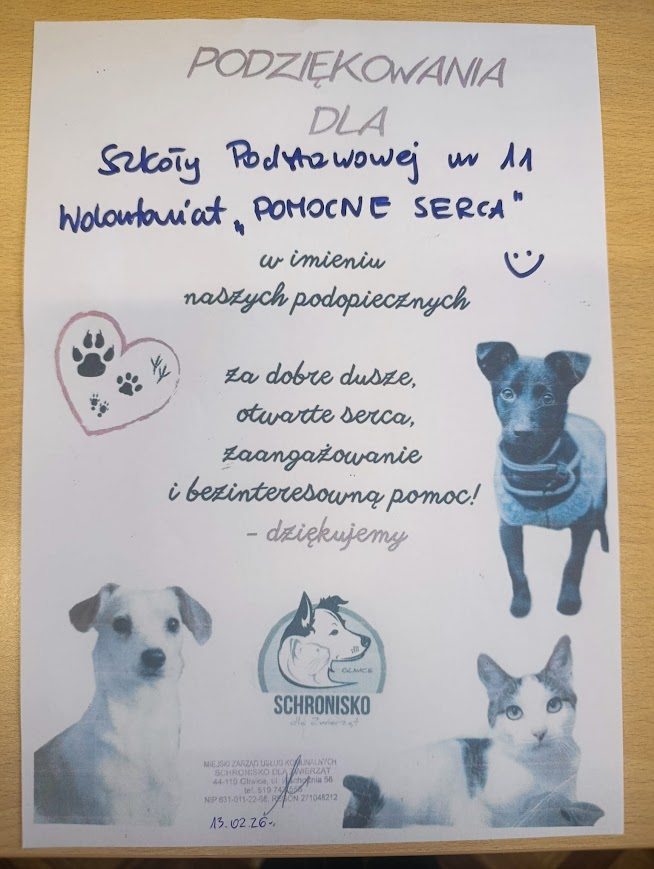 PODZIĘKOWANIA
DLA
Szkoły Podstawowej nr 11
Wolontariat „POMOCNE SERCA"
w imieniu
naszych podopiecznych
za dobre dusze,
otwarte serca,
zaangażowanie
i bezinteresowną pomoc!
- dziękujemy
GLIWICE
SCHRONISKO
dla Zwierząt
MIEJSKI ZARZĄD USŁUG KOMUNALNYCH
SCHRONISKO DLA ZWIERZĄT
44-110 Gliwice, ul. Wschodnia 56
tel. 519 74
NIP 631-011-22-66, REGON 271048212
13.02.26r.